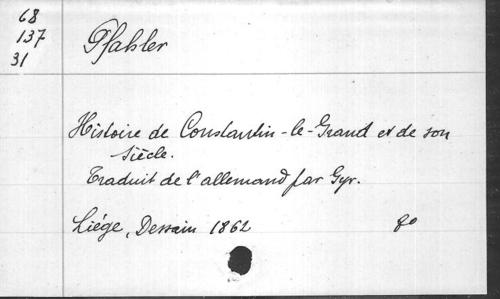 68
137
31
Pfahler
Histoire de Constantin-le-Grand et de son
siècle.
Traduit de l'allemand par Gyr.
Liége, Dessain 1862 8o